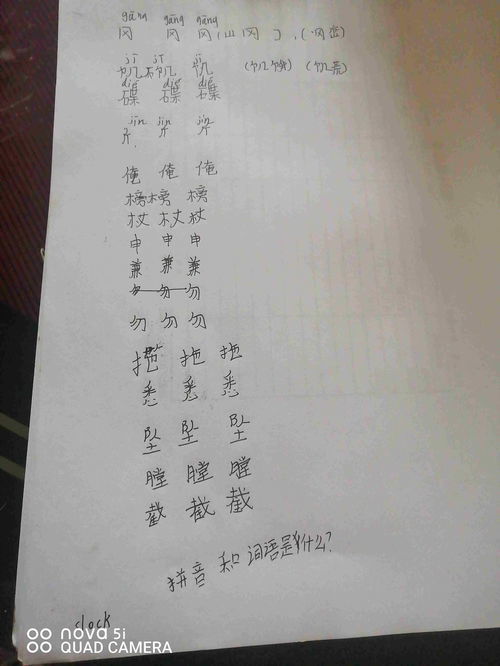 gāng gāng gāng
冈 冈 冈 (山冈), (冈峦)
jī jī jī
饥 饥 饥 (饥饿) (饥荒)
dié dié dié
碟 碟 碟
jīn jīn jīn
斤 斤 斤
俺 俺 俺
榜 榜 榜
杖 杖 杖
申 申 申
兼 兼 兼
勿 勿 勿
勿 勿 勿
拖 拖 拖
悉 悉 悉
坠 坠 坠
膛 膛 膛
截 截 截
拼音和词语是什么?
clock
nova 5i
QUAD CAMERA